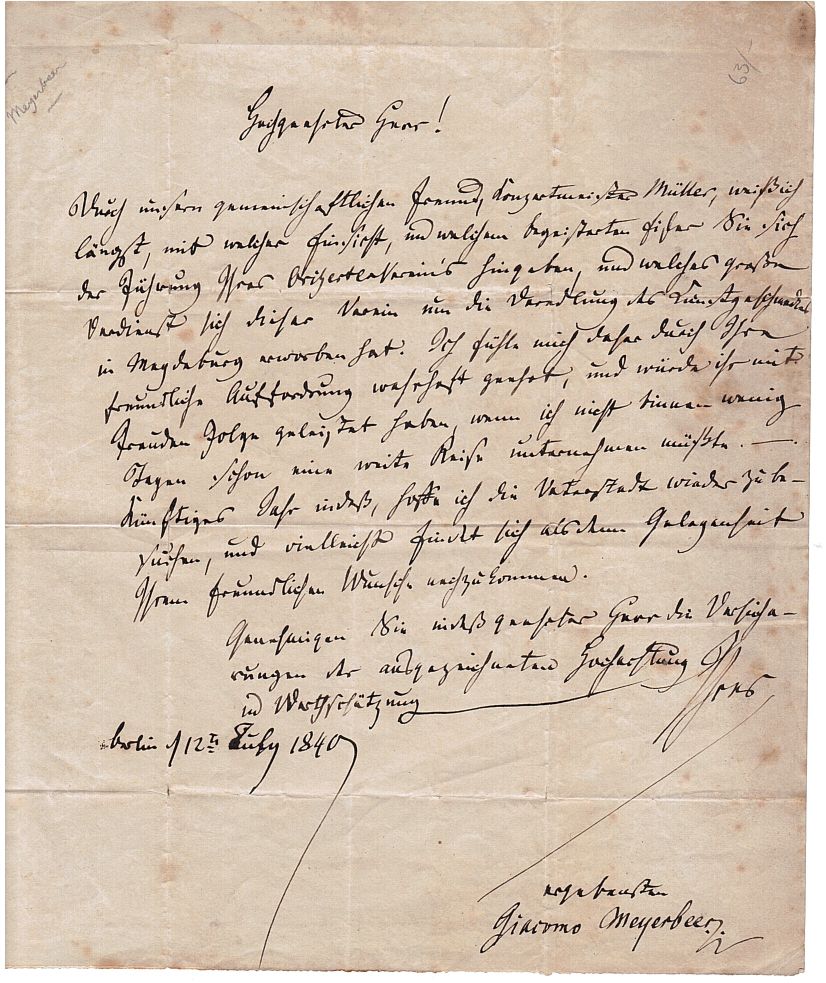 Meyerbeer
63/-
Hochgeehrter Herr!
Durch unsern gemeinschaftlichen Freund, Konzertmeister Müller, weiß ich
längst, mit welcher Einsicht, und welchem begeisterten Eifer Sie sich
der Führung Ihres hingeben, und welches große
Verdienst sich dieser Verein um die Veredlung des Kunstgeschmackes
in Magdeburg erworben hat. Ich fühle mich daher durch Ihre
freundliche Aufforderung wahrhaft geehrt, und würde ihr mit
Freuden Folge geleistet haben, wenn ich nicht binnen wenig
Tagen schon eine weite Reise unternehmen müßte. —.
Künftiges Jahr indeß, hoffe ich die Vaterstadt wieder zu be-
suchen, und vielleicht findet sich alsdann Gelegenheit
Ihrem freundlichen Wunsche nachzukommen.
Genehmigen Sie indeß geehrter Herr die Versiche-
rungen der ausgezeichneten Hochachtung
und Werthschätzung Ihres
Berlin d 12t July 1840
ergebensten
Giacomo Meyerbeer.